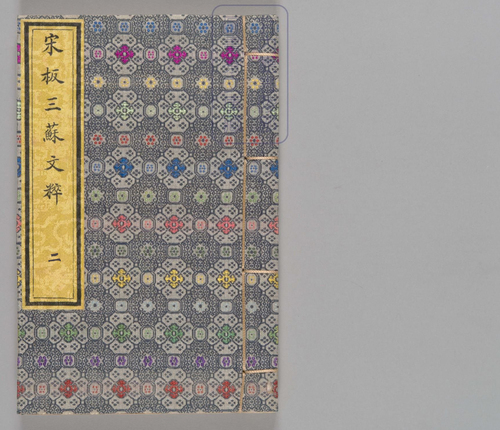 宋板三蘇文粹
二